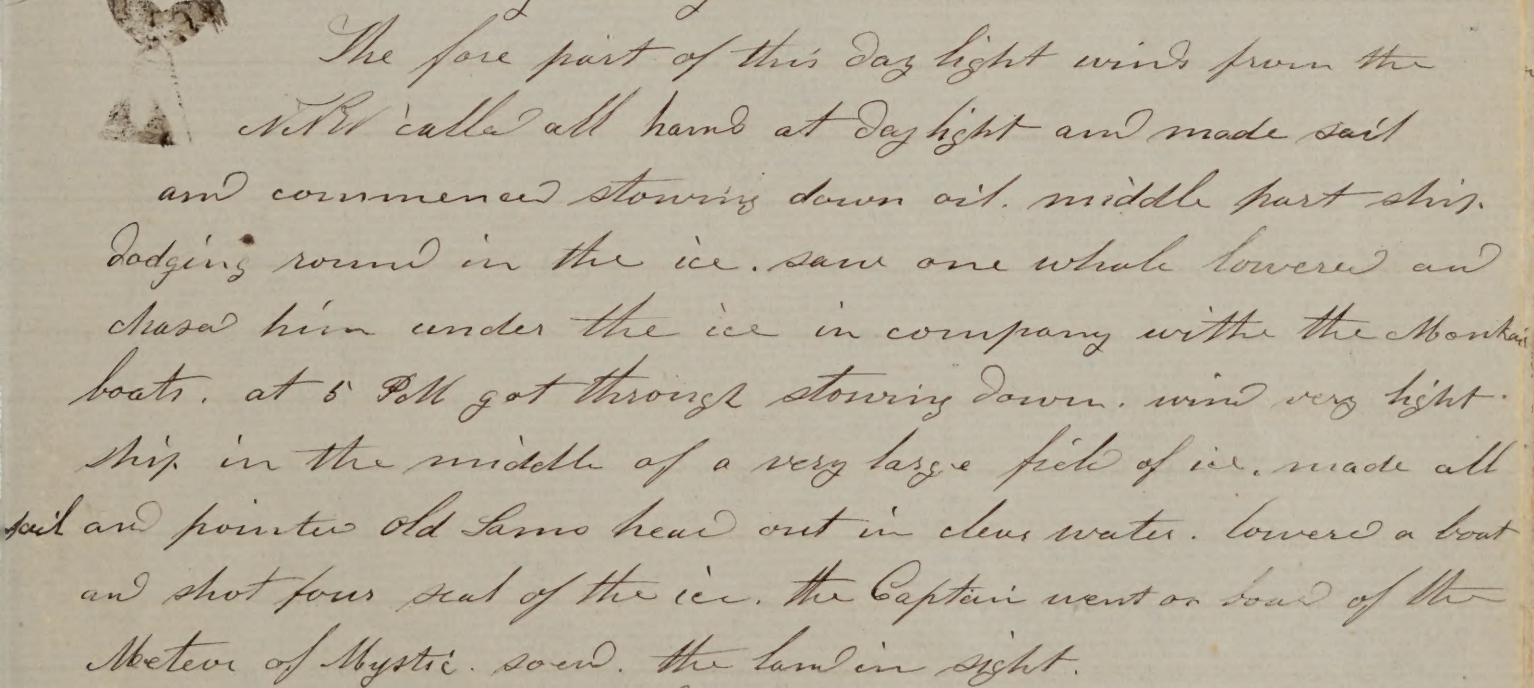 The fore part of this day light winds from the
NNW called all hand at daylight and made sail
and commenced stowing down oil. middle part ship
dodging round in the ice. saw one whale lowered and
chased him under the ice in company withe the
boats. at 5 PM got through stowing down. wind very light.
ship in the middle of a very large field of ice. made all
sail and pointed old head out in clear water. lowered a boat
and shot four seal of the ice. the Captain went on board of the
Meteor of Mystic. the land in sight.